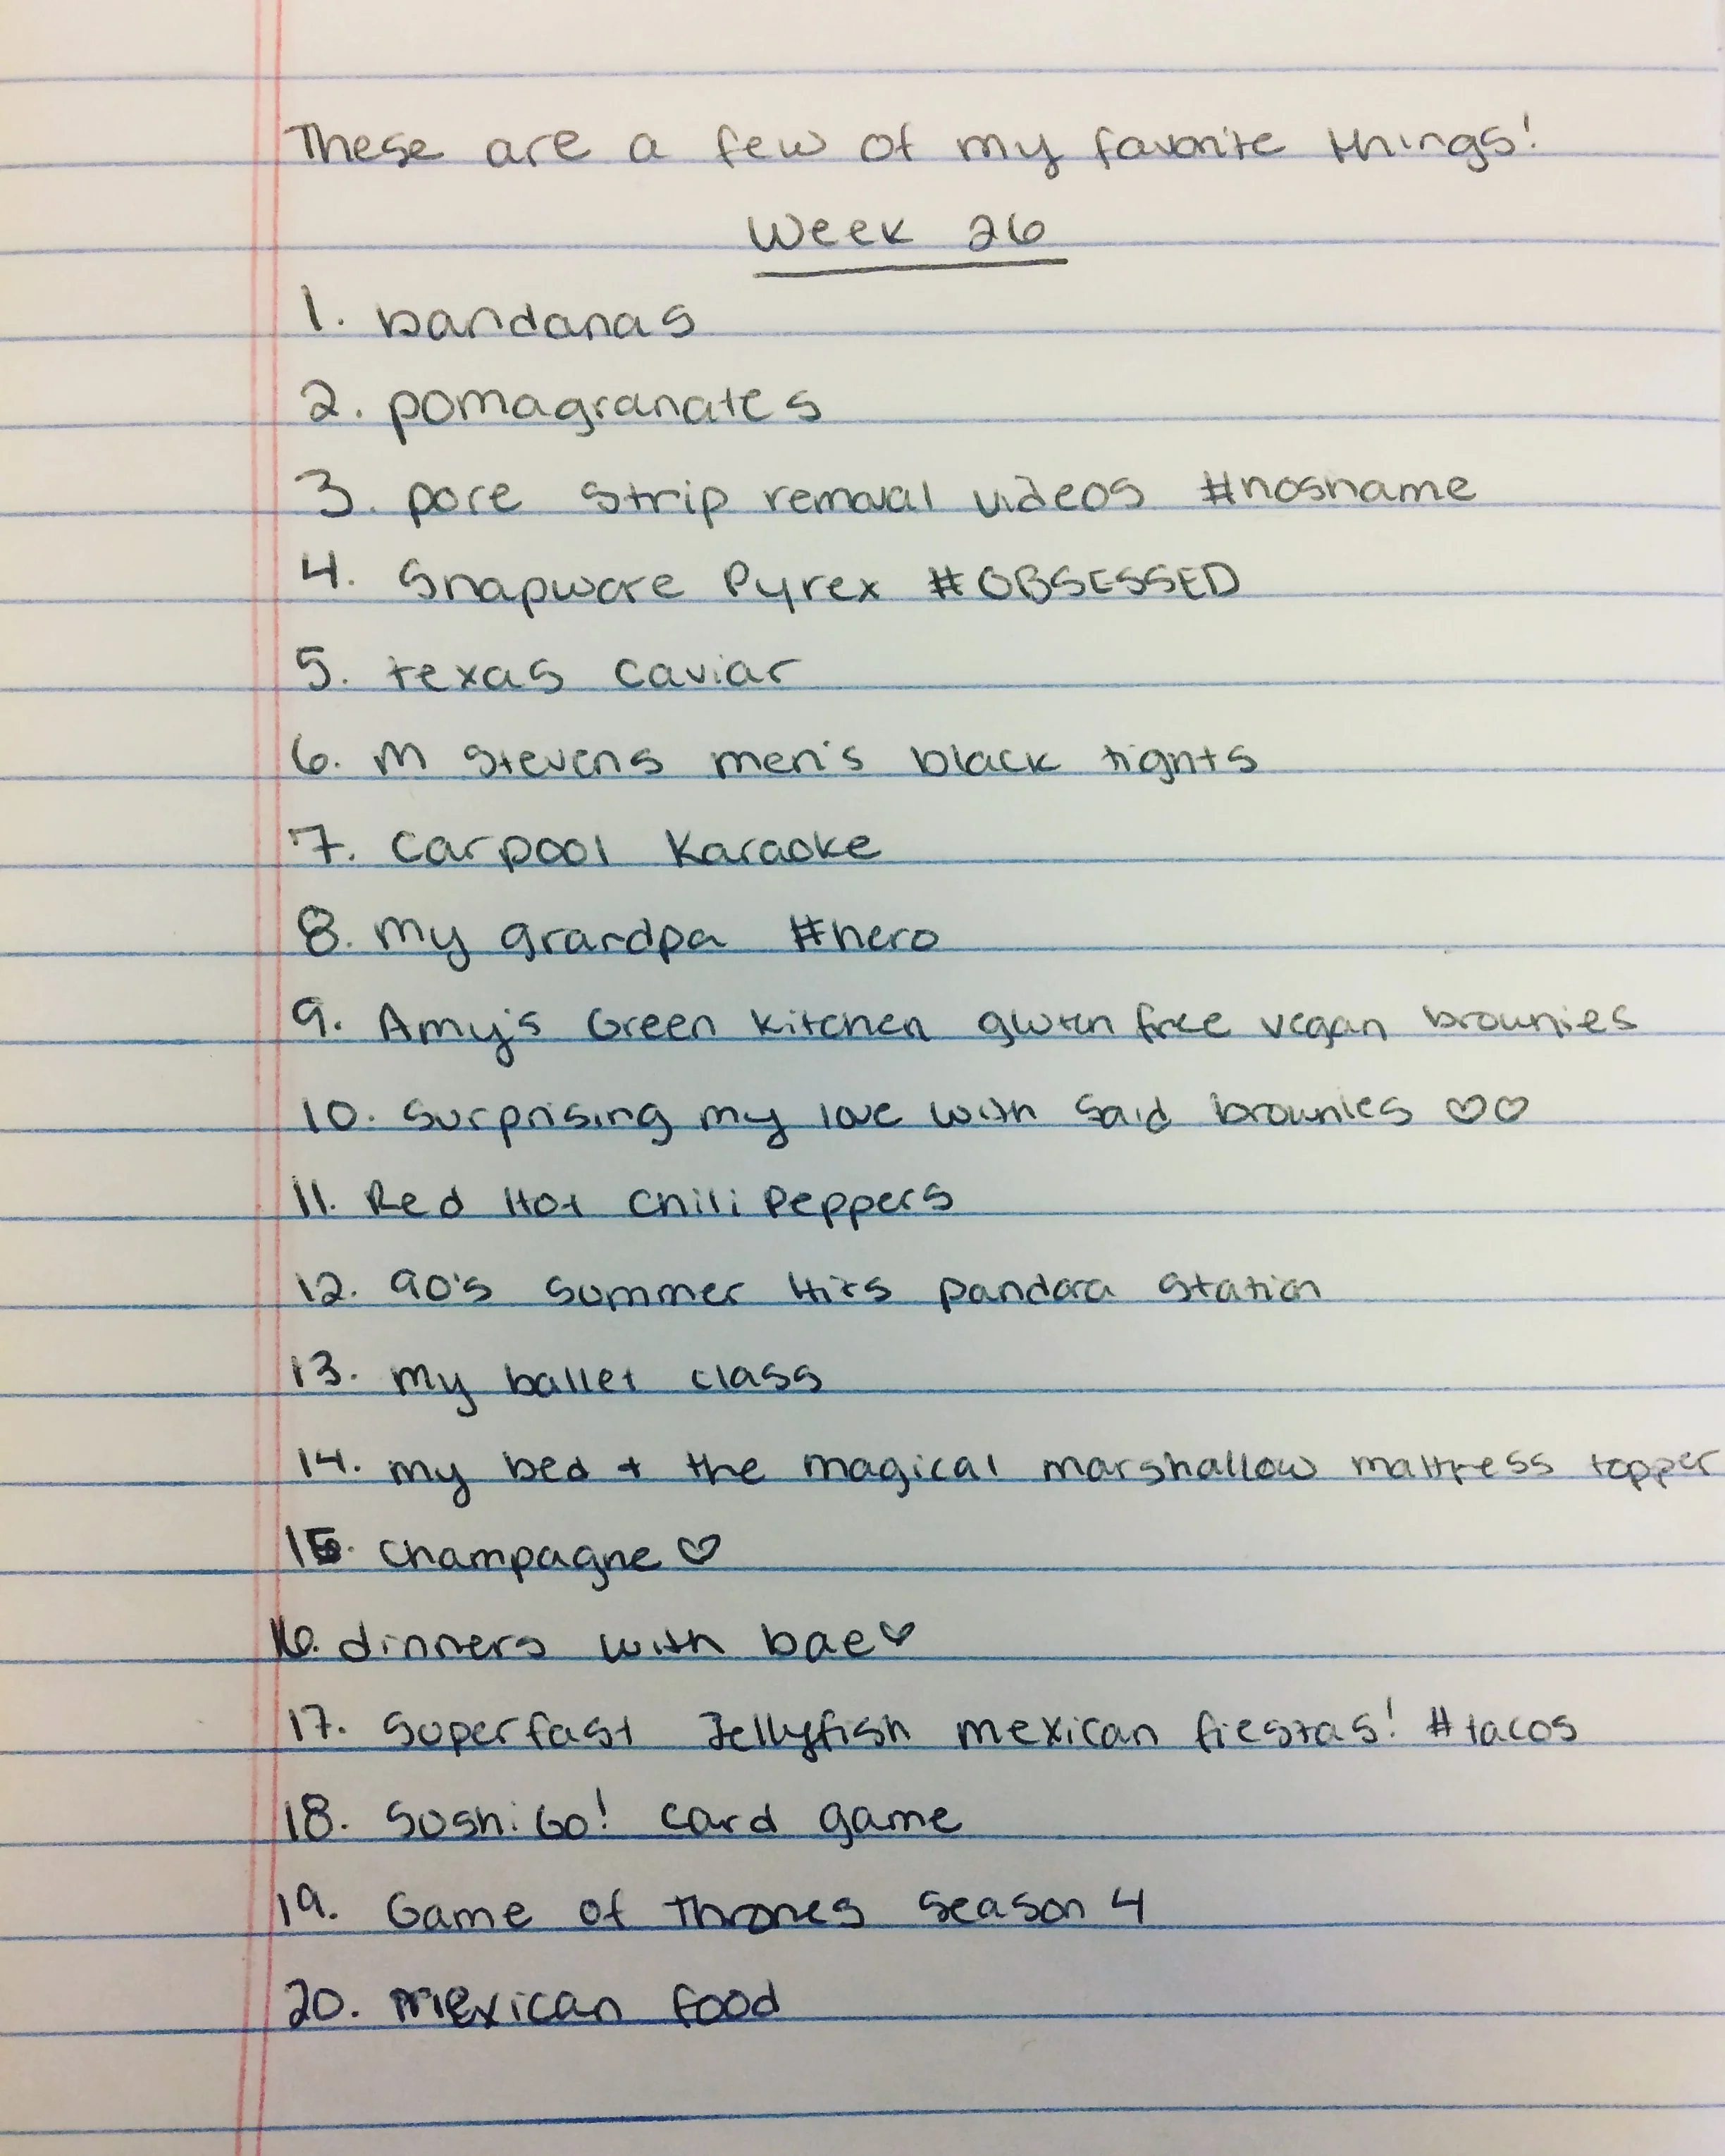 These are a few of my favorite things!
Week 26
1. bandanas
2. pomagranates
3. pore strip removal videos #noshame
4. Snapware Pyrex #OBSESSED
5. texas caviar
6. M Stevens men's black tights
7. Carpool Karaoke
8. my grandpa #hero
9. Amy's Green Kitchen gluten free vegan brownies
10. Surprising my love with said brownies ♡♡
11. Red Hot Chili Peppers
12. 90's Summer Hits pandora station
13. my ballet class
14. my bed + the magical marshallow mattress topper
15. Champagne ♡
16. dinners with bae ♡
17. Superfast Jellyfish mexican fiestas! #tacos
18. Sushi Go! card game
19. Game of Thrones Season 4
20. mexican food